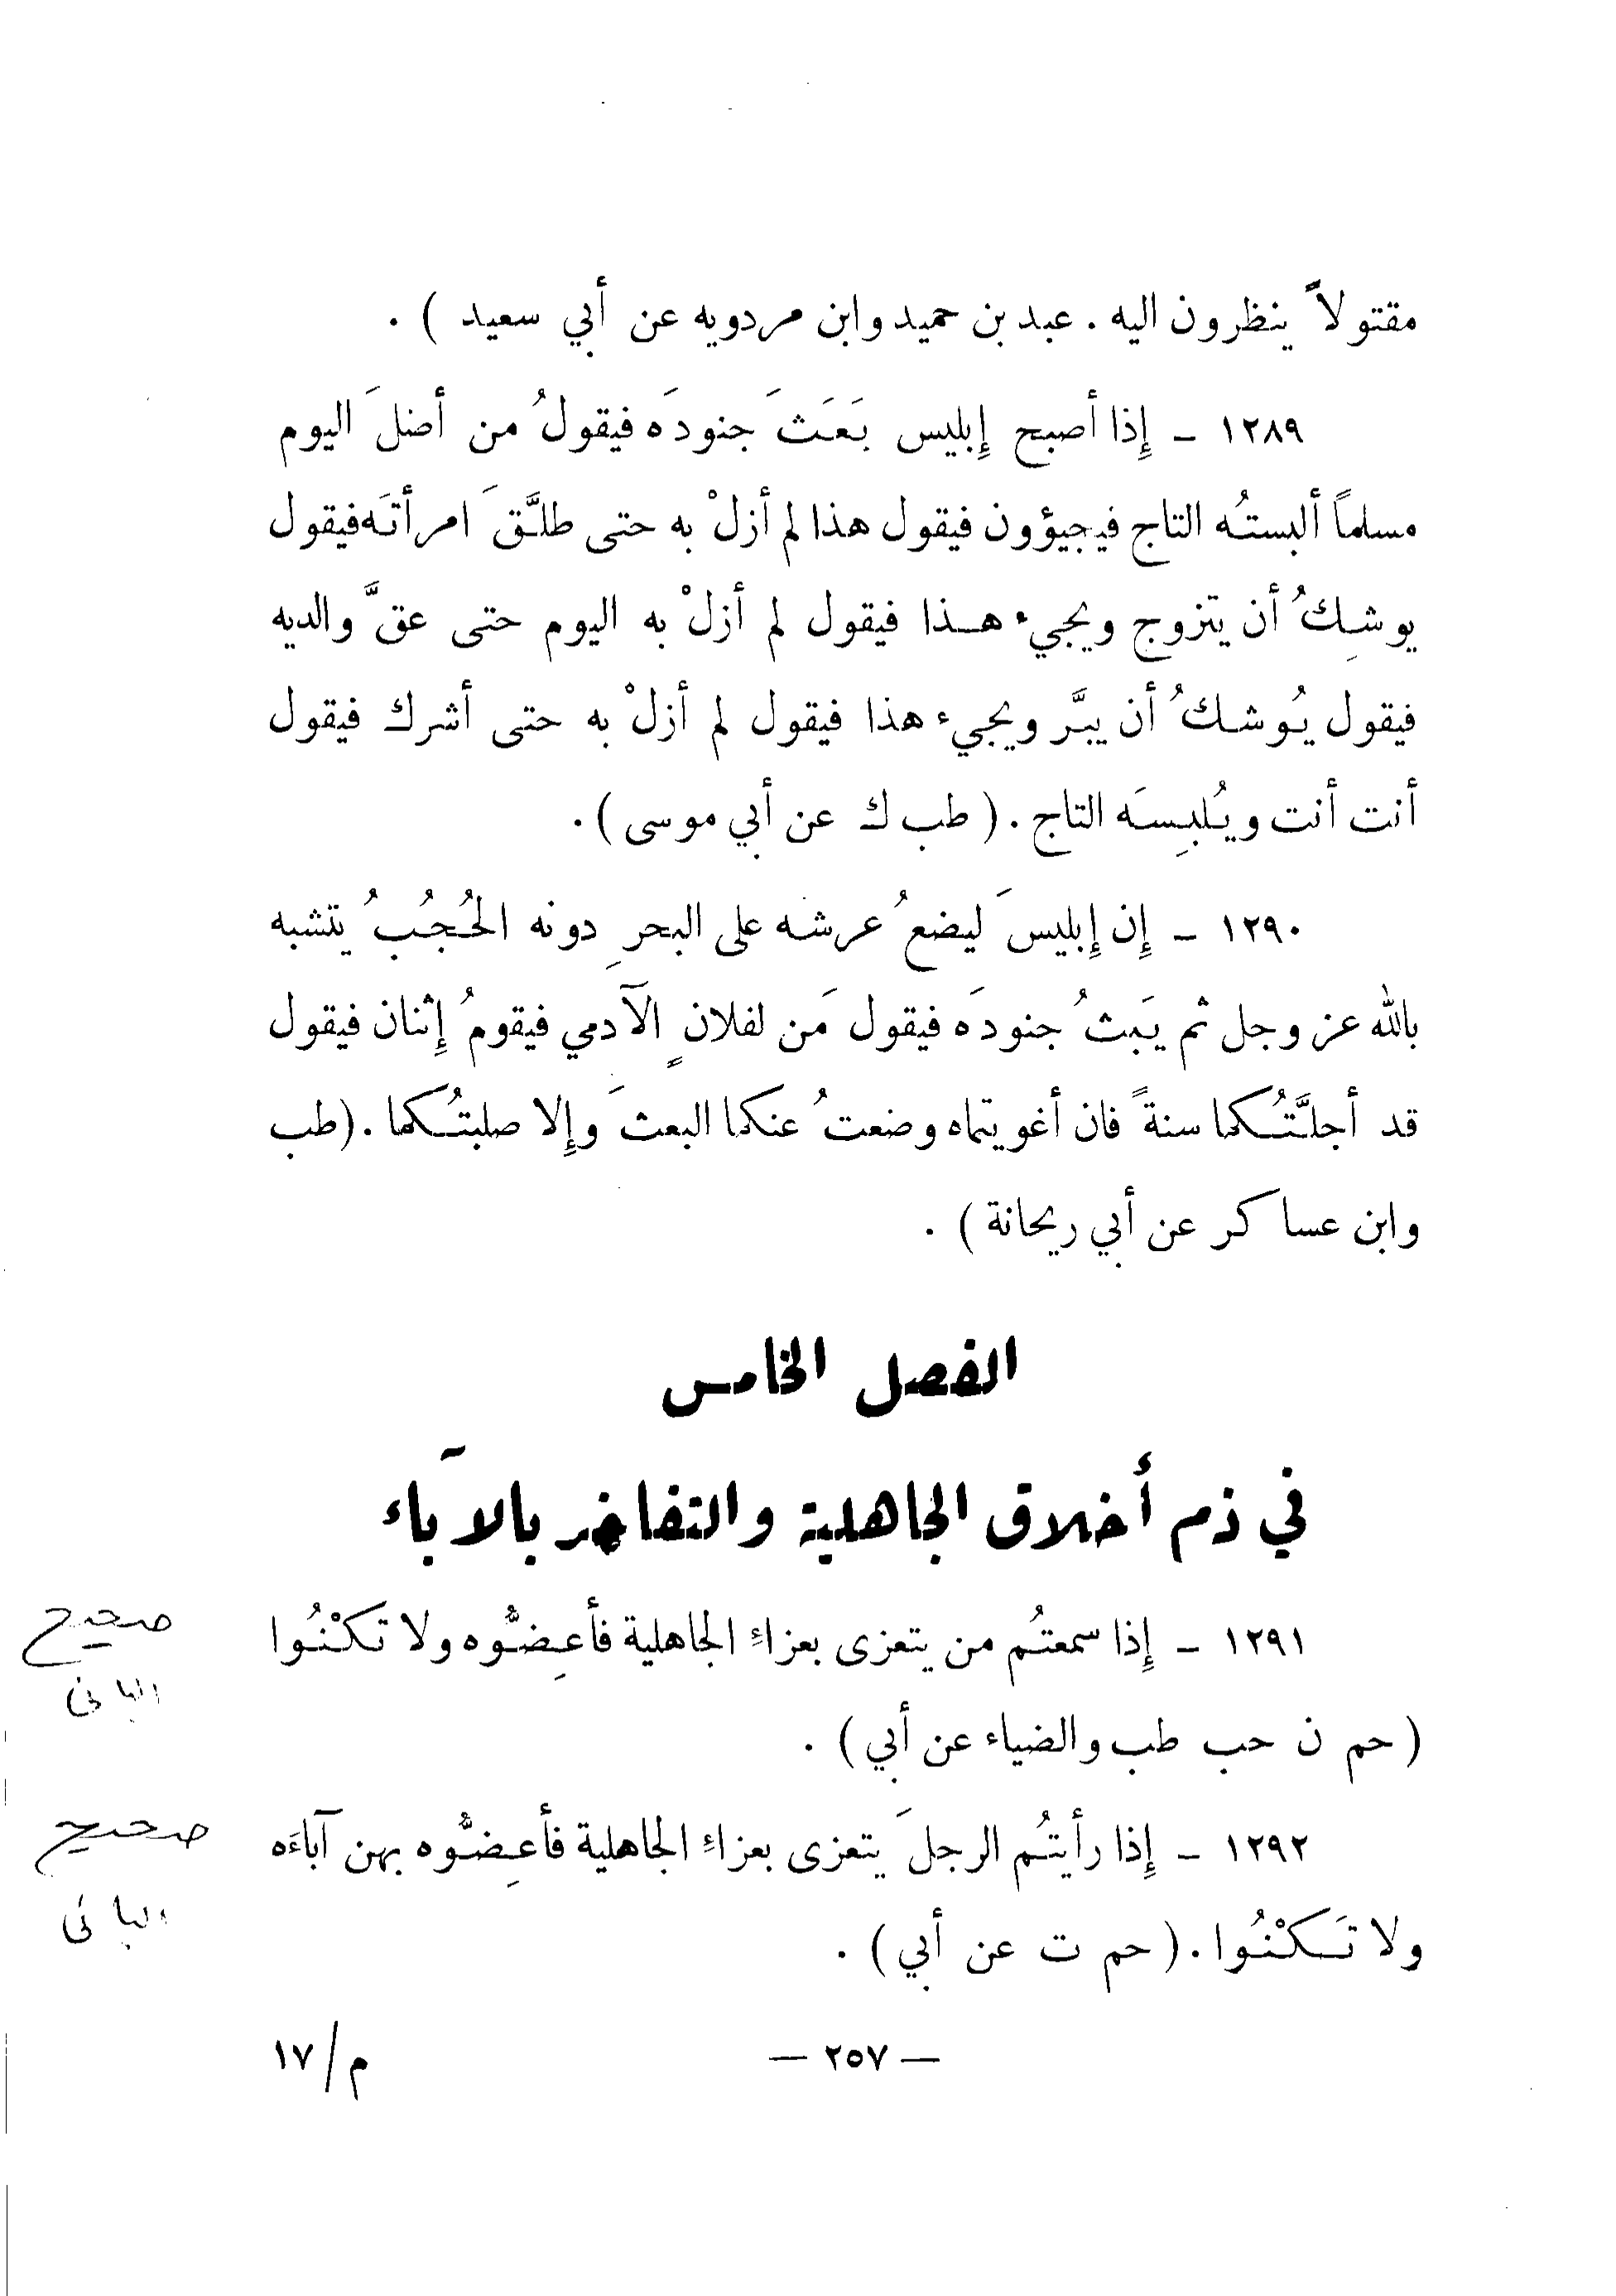 مقتولاً ينظرون اليه . عبد بن حميد وابن مردويه عن أبي سعيد ) .
١٢٨٩ - إِذا أصبح إِبليس بَعَثَ جنودَه فيقولُ من أضلَ اليوم
مسلماً ألبستُه التاج فيجيؤون فيقول هذا لم أزلْ به حتى طلَّقَ امرأتَه فيقول
يوشِكُ أن يتزوج ويجيء هذا فيقول لم أزلْ به اليوم حتى عقَّ والديه
فيقول يُوشكُ أن يبَّر ويجيء هذا فيقول لم أزلْ به حتى أشرك فيقول
أنت أنت ويُلبِسَه التاج . ( طب ك عن أبي موسى ) .
١٢٩٠ - إِن إِبليسَ ليضعُ عرشه على البحرِ دونه الحُجُبُ يتشبه
بالله عز وجل ثم يَبثُ جنودَه فيقول مَن لفلانٍ الآدمي فيقومُ إِثنان فيقول
قد أجلَّتُكما سنةً فان أغويتماه وضعتُ عنكما البعثَ وإِلا صلبتُكما . (طب
وابن عساكر عن أبي ريحانة ) .
الفصل الخامس
في ذم أخلاق الجاهلية والتفاخر بالآباء
١٢٩١ - إِذا سمعتُم من يتعزى بعزاءِ الجاهلية فأعِضُّوه ولا تكْنُوا
صحيح
البانى
( حم ن حب طب والضياء عن أبي ) .
١٢٩٢ - إِذا رأيتُم الرجلَ يتعزى بعزاءِ الجاهلية فأعِضُّوه بهن آباءَه
صحيح
البانى
ولا تَكْنُوا . ( حم ت عن أبي ) .
— ٢٥٧ —
م/١٧